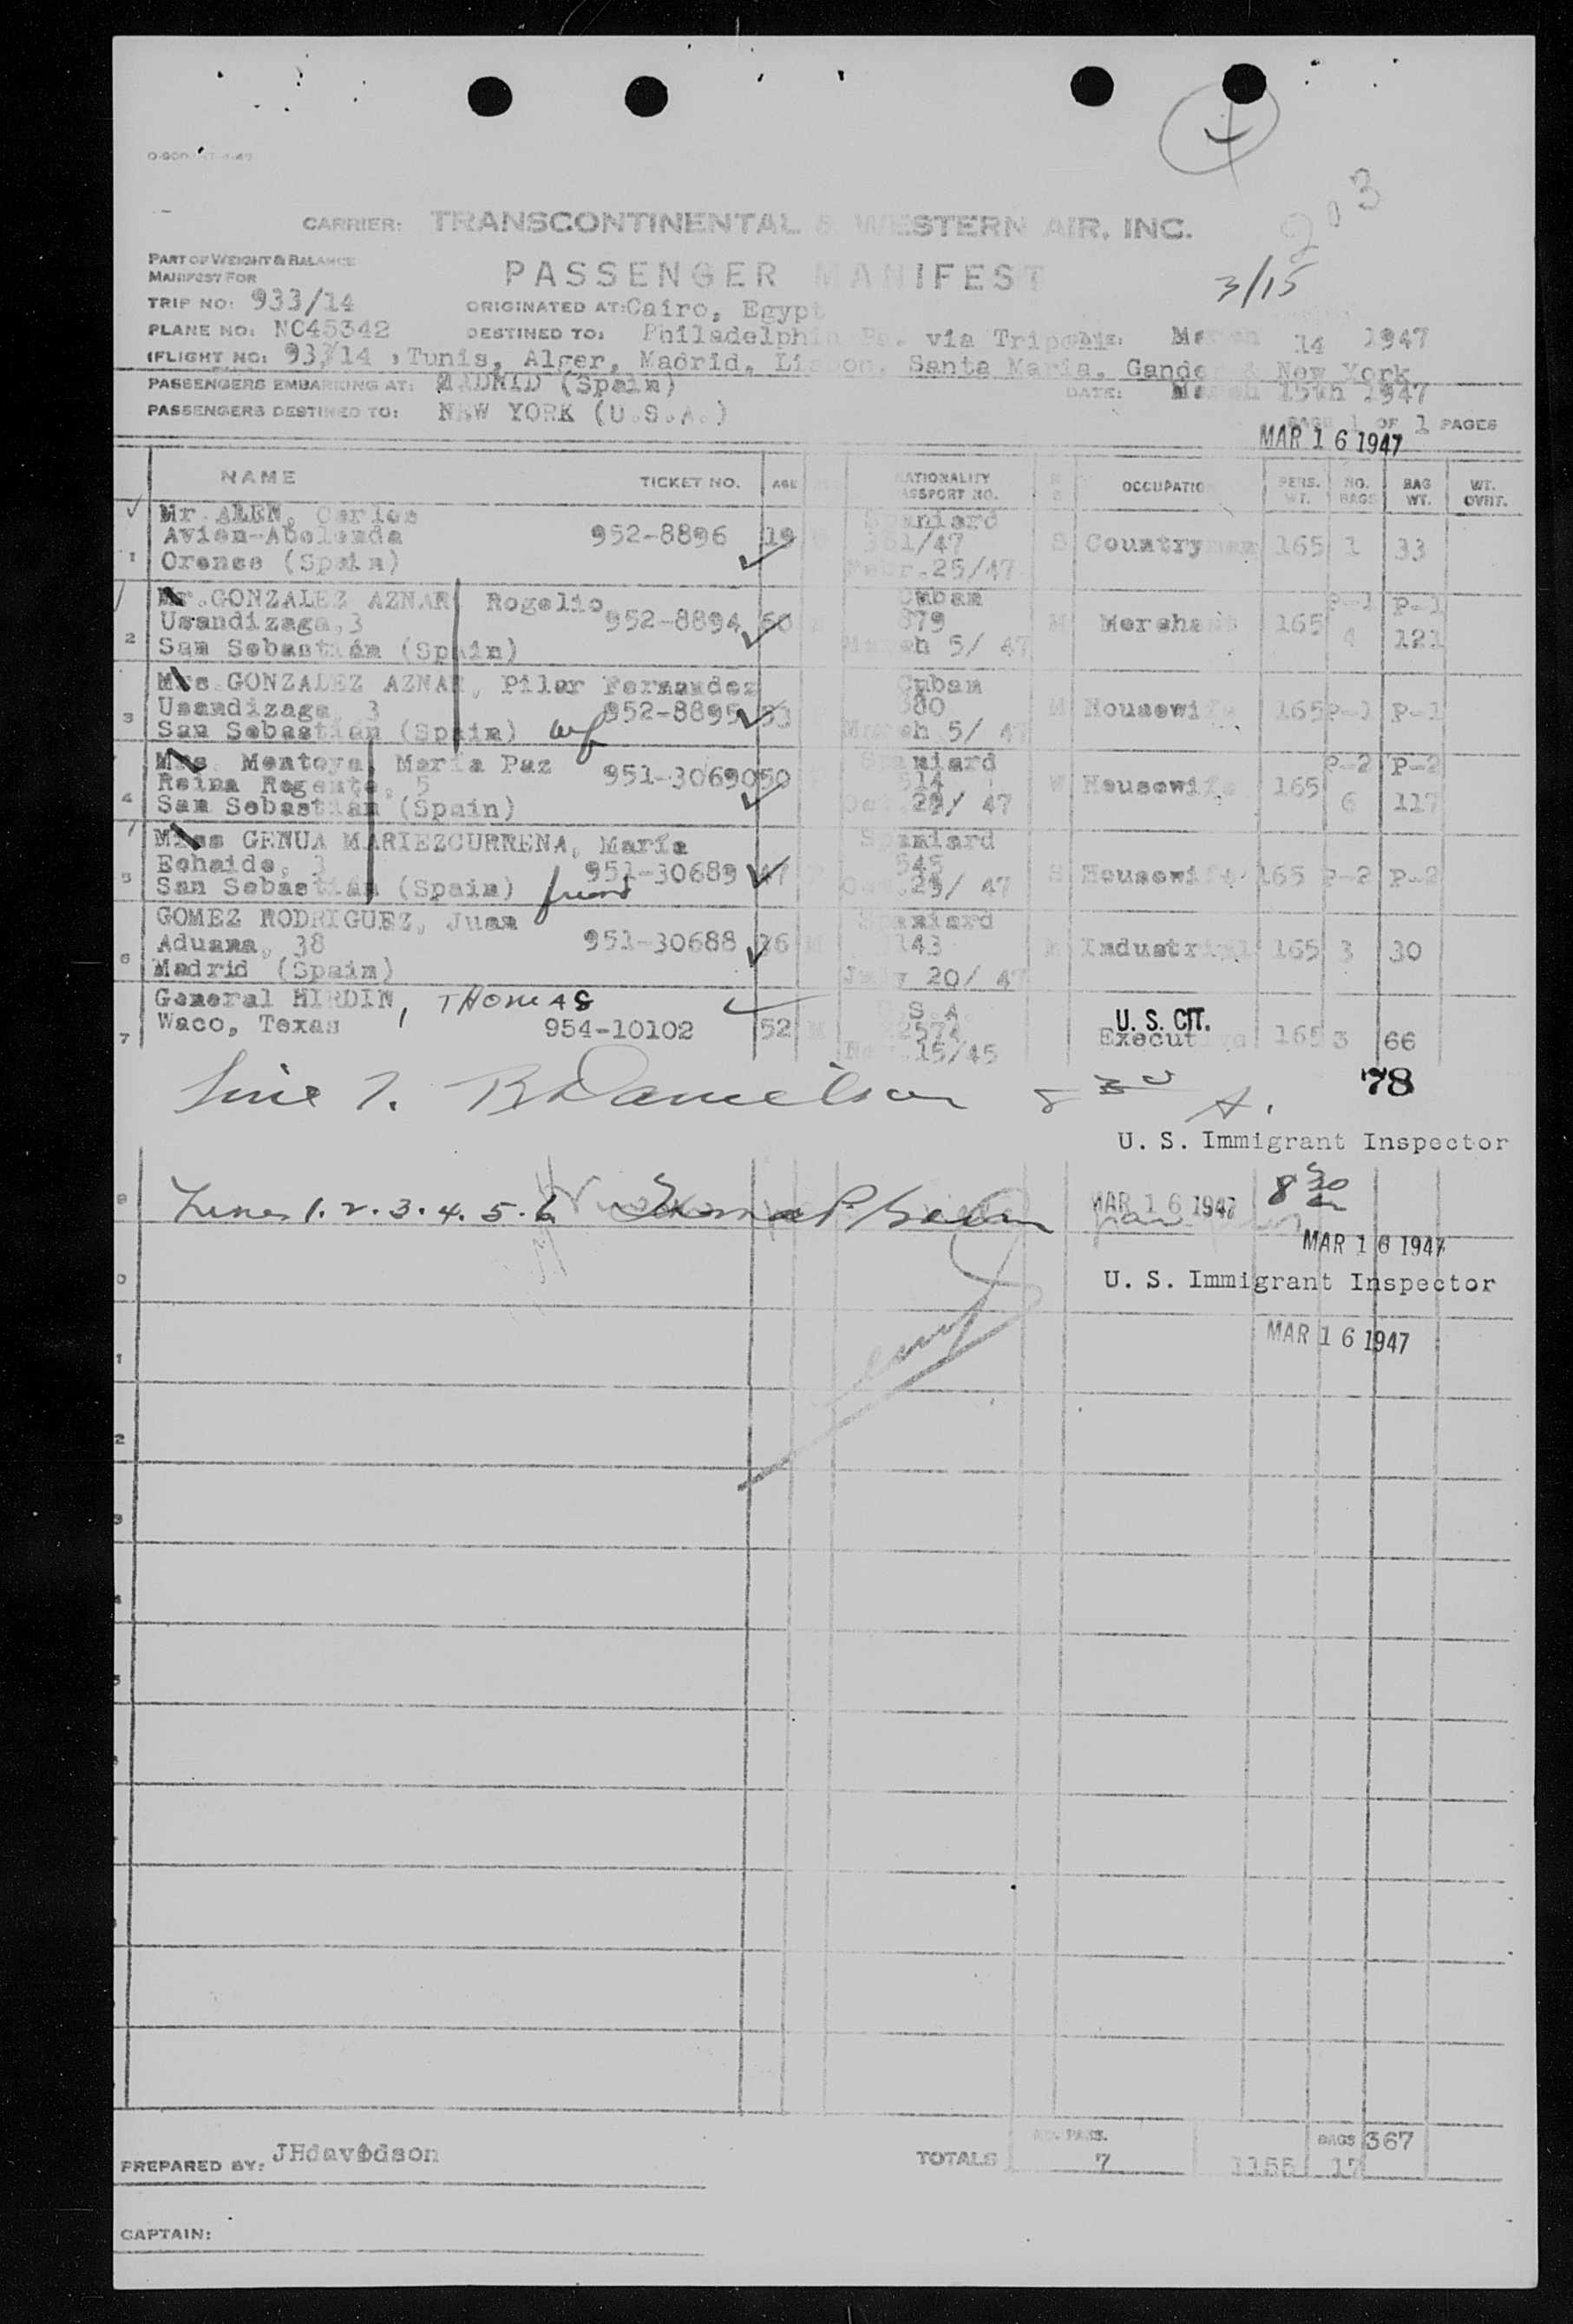 203
CARRIER: TRANSCONTINENTAL & WESTERN AIR, INC.
PART OF WEIGHT & BALANCE
MANIFEST FOR
PASSENGER MANIFEST
3/15
TRIP NO: 933/14 ORIGINATED AT: Cairo, Egypt
PLANE NO: NC45342 DESTINED TO: Philadelphia Pa. via Tripoli March 14 1947
(FLIGHT NO: 933/14 , Tunis, Alger, Madrid, Lisbon, Santa Maria, Gander & New York
PASSENGERS EMBARKING AT: MADRID (Spain) DATE: March 15th 1947
PASSENGERS DESTINED TO: NEW YORK (U.S.A.)
PAGE 1 OF 1 PAGES
MAR 16 1947
NAME TICKET NO. AGE NATIONALITY PASSPORT NO. OCCUPATION PERS. WT. NO. BAGS BAG WT. WT. OVRT.
Mr. ALEN, Carlos Spaniard
Avion-Abelenda 952-8896 19 351/47 S Countryman 165 1 33
1 Orense (Spain) Febr.25/47
Mr. GONZALEZ AZNAR, Rogelio Cuban P-1 P-1
Usandizaga, 3 952-8894 60 879 M Merchant 165 4 121
2 San Sebastián (Spain) March 5/ 47
Mrs GONZALEZ AZNAR, Pilar Fernandez Cuban
Usandizaga, 3 952-8895 53 880 M Housewife 165 P-1 P-1
3 San Sebastián (Spain) wf March 5/ 47
Mrs. Montoya, Maria Paz Spaniard P-2 P-2
Reina Regente, 5 951-30690 50 514 W Housewife 165 6 117
4 San Sebastian (Spain) Oct. 29/ 47
Miss GENUA MARIEZCURRENA, María Spaniard
Echaide, 3 951-30689 47 545 S Housewife 165 P-2 P-2
5 San Sebastián (Spain) friend Oct. 29/ 47
GOMEZ RODRIGUEZ, Juan Spaniard
Aduana, 38 951-30688 36 M 1143 M Industrial 165 3 30
6 Madrid (Spain) July 20/ 47
General HIRDIN, THOMAS U.S.A.
Waco, Texas 954-10102 52 M U.S. CIT. Executive 165 3 66
7 Nov. 15/45
Line 7. Danielson
78
U. S. Immigrant Inspector
Lines 1. 2. 3. 4. 5. 6. MAR 16 1947 8 30
MAR 16 1947
U. S. Immigrant Inspector
MAR 16 1947
PREPARED BY: JHdavidson TOTALS NO. PASS. 7 1155 BAGS 17 367
CAPTAIN: